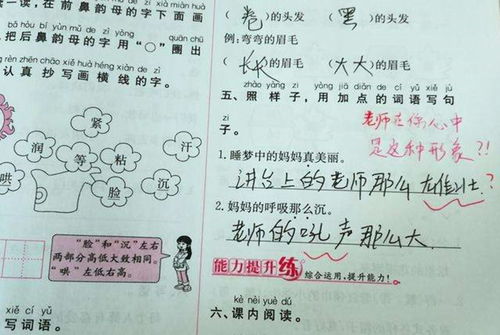 一读，在前鼻韵母的字下面画
bǎ hòu bí yùn mǔ de zì yòng quān chū
把后鼻韵母的字用“○”圈出
rèn zhēn chāo xiě huà héng xiàn de zì
认真抄写画横线的字。
紧
润
等
粘
汗
哄
脸
沉
“脸”和“沉”左右
两部分高低大致相同。
“哄”左低右高。
xiě cí yǔ
写词语。
（卷）的头发（黑）的头发
例：弯弯的眉毛
（长长）的眉毛（大大）的眉毛
zhào yàng zi yòng jiā diǎn de cí yǔ xiě jù
五、照样子，用加点的词语写句
zi
子。
老师在你心中
是这种形象？！
1.睡梦中的妈妈真美丽。
讲台上的老师那么
？
2.妈妈的呼吸那么沉。
老师的吼声那么大
能力提升练 综合运用，提升能力！
kè nèi yuè dú
六、课内阅读。